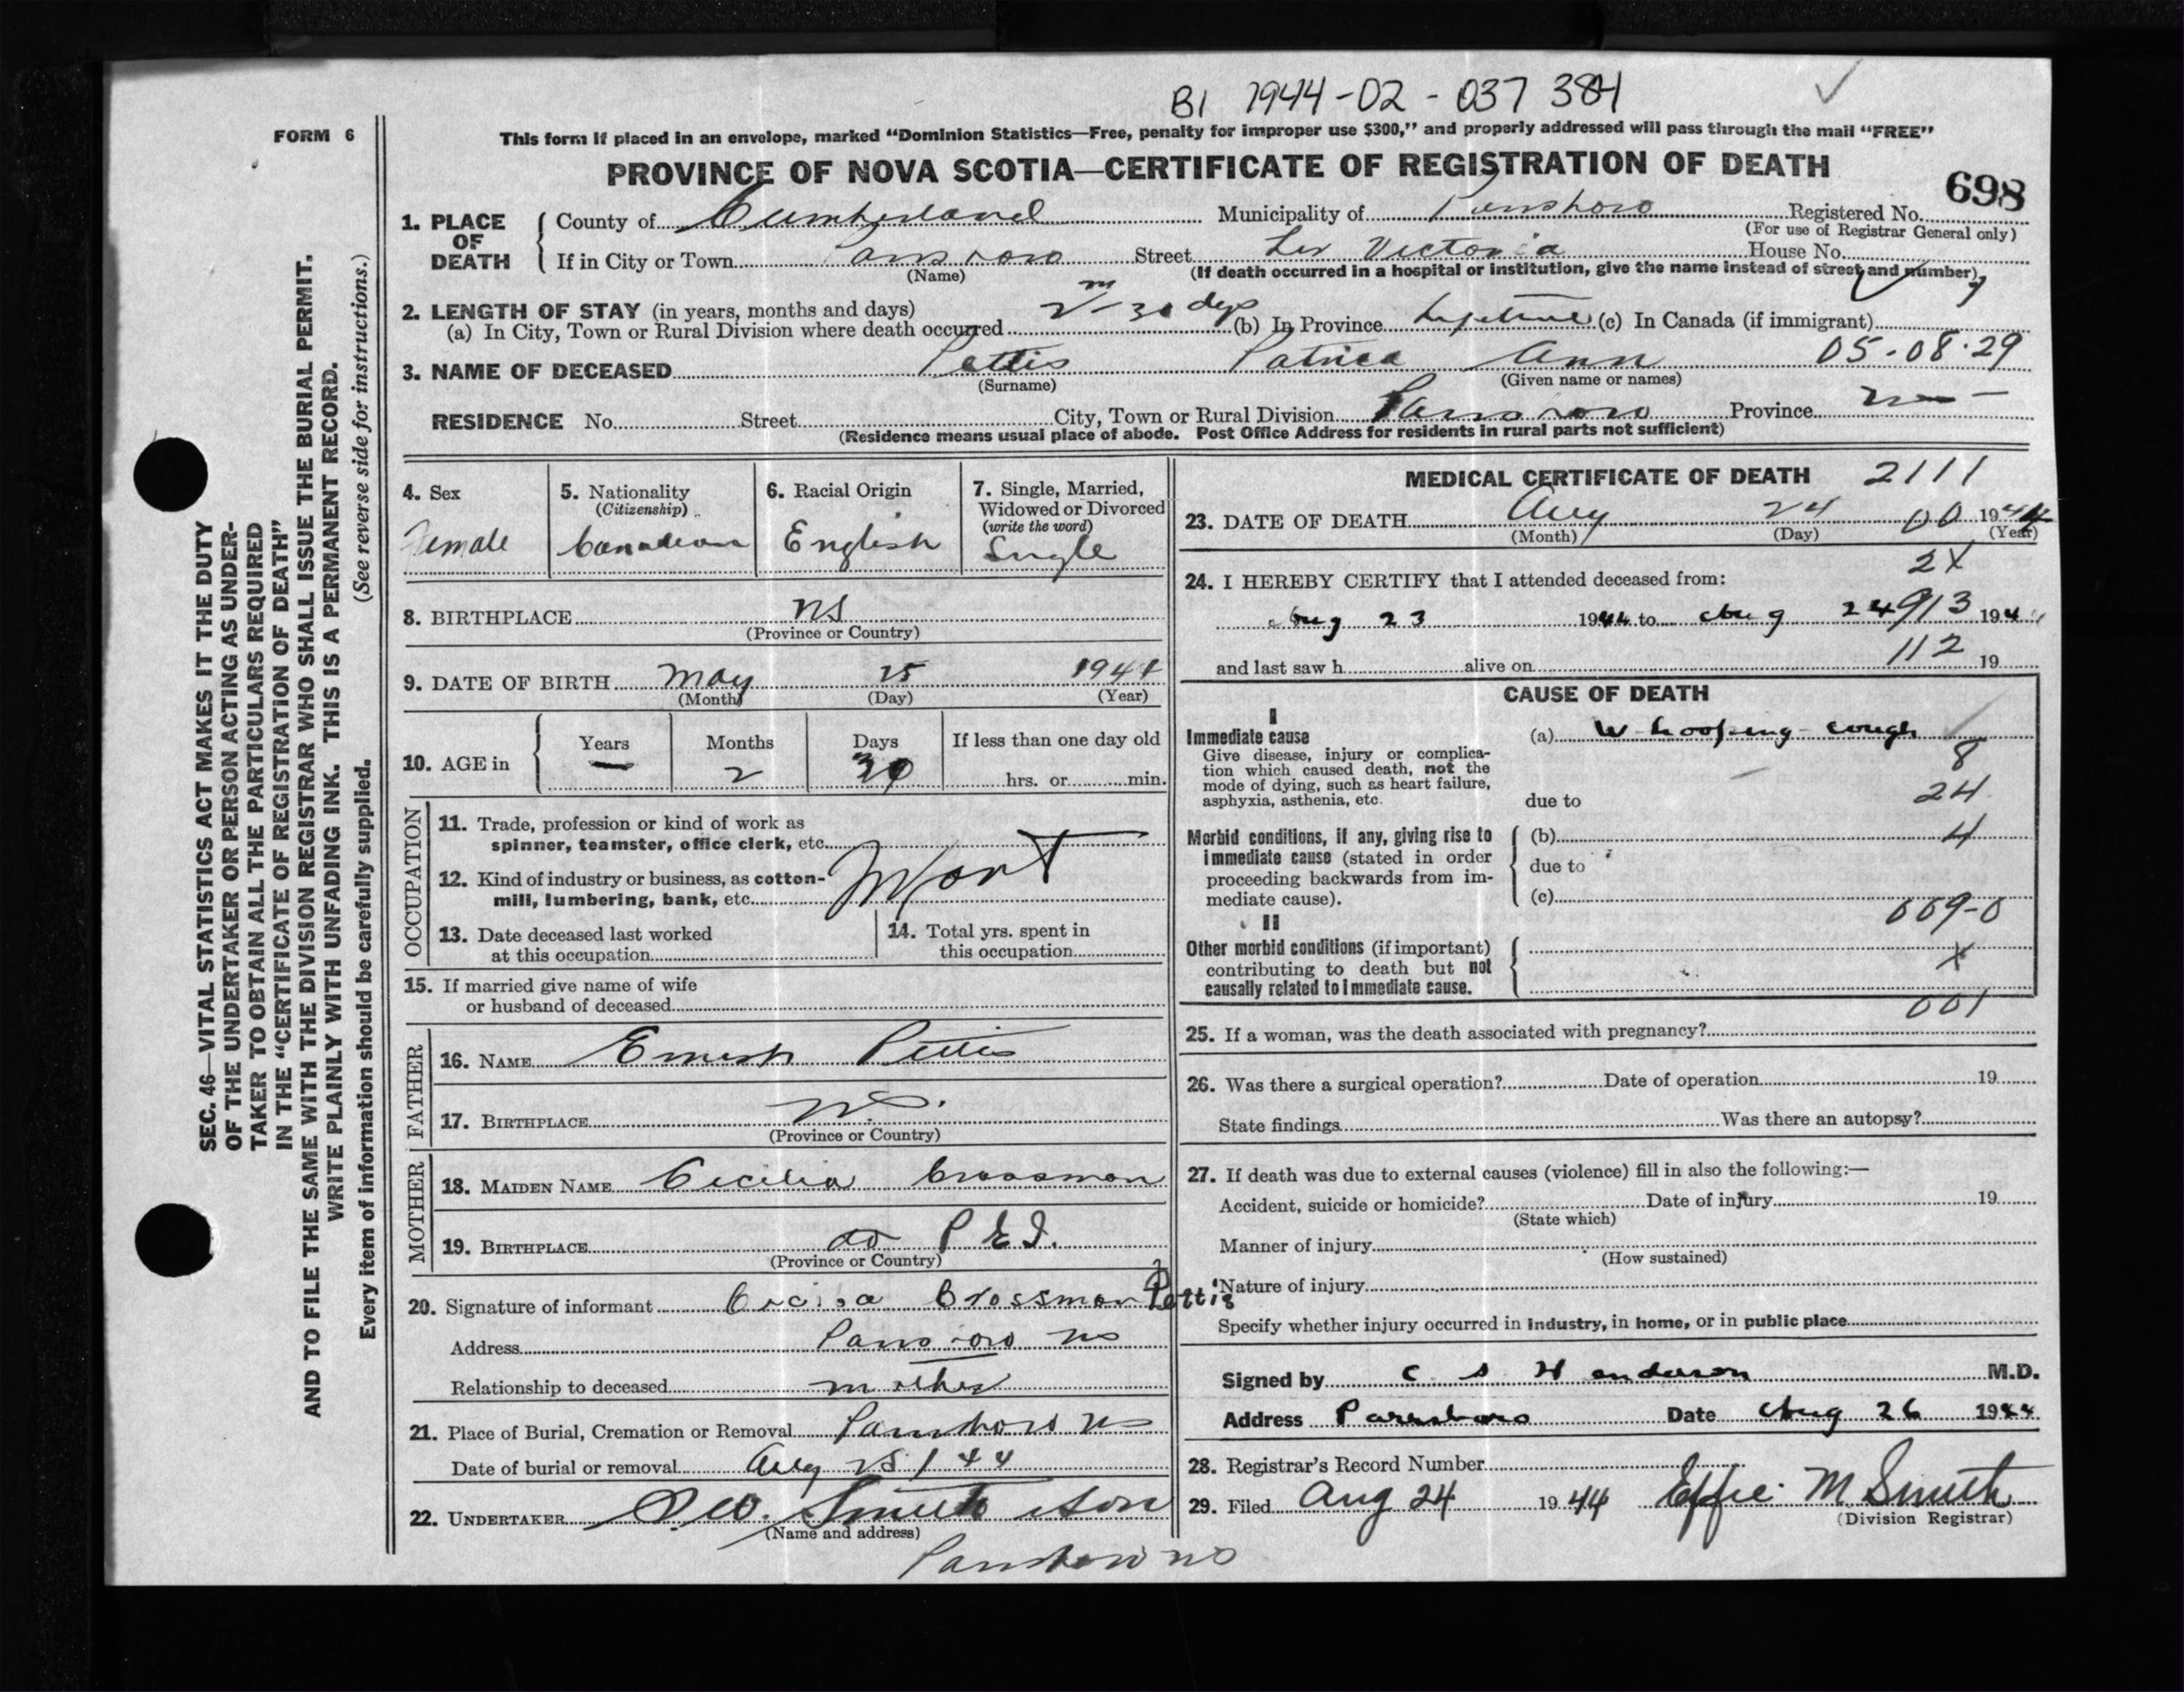 B1 1944-02-037384
FORM 6
This form if placed in an envelope, marked “Dominion Statistics—Free, penalty for improper use $300,” and properly addressed will pass through the mail “FREE”
PROVINCE OF NOVA SCOTIA—CERTIFICATE OF REGISTRATION OF DEATH
698
1. PLACE OF DEATH
County of Cumberland Municipality of Parrsboro Registered No.
(For use of Registrar General only)
If in City or Town Parrsboro Street Victoria House No.
(Name) (If death occurred in a hospital or institution, give the name instead of street and number)
2. LENGTH OF STAY (in years, months and days)
(a) In City, Town or Rural Division where death occurred 2 m - 30 days (b) In Province Lifetime (c) In Canada (if immigrant)
3. NAME OF DECEASED Pettis Patrica Ann 05-08-29
(Surname) (Given name or names)
RESIDENCE No. Street City, Town or Rural Division Parrsboro Province
(Residence means usual place of abode. Post Office Address for residents in rural parts not sufficient)
4. Sex Female
5. Nationality (Citizenship) Canadian
6. Racial Origin English
7. Single, Married, Widowed or Divorced (write the word) Single
8. BIRTHPLACE NS
(Province or Country)
9. DATE OF BIRTH May 25 1944
(Month) (Day) (Year)
10. AGE in Years — Months 2 Days 30 If less than one day old hrs. or min.
OCCUPATION
11. Trade, profession or kind of work as spinner, teamster, office clerk, etc.
12. Kind of industry or business, as cotton-mill, lumbering, bank, etc.
13. Date deceased last worked at this occupation
14. Total yrs. spent in this occupation
15. If married give name of wife or husband of deceased
FATHER
16. NAME Ernest Pettis
17. BIRTHPLACE N.S.
(Province or Country)
MOTHER
18. MAIDEN NAME Cecilia Crossman
19. BIRTHPLACE P E I.
(Province or Country)
20. Signature of informant Crossman Pettis
Address Parrsboro NS
Relationship to deceased mother
21. Place of Burial, Cremation or Removal Parrsboro NS
Date of burial or removal Aug 25/44
22. UNDERTAKER Smith & Son
(Name and address)
Parrsboro NS
MEDICAL CERTIFICATE OF DEATH 2111
23. DATE OF DEATH Aug 24 00 1944
(Month) (Day) (Year)
2X
24. I HEREBY CERTIFY that I attended deceased from:
Aug 23 1944 to Aug 24 913 1944
and last saw h alive on 112 19
CAUSE OF DEATH
I
Immediate cause
Give disease, injury or complication which caused death, not the mode of dying, such as heart failure, asphyxia, asthenia, etc.
(a) Whooping-cough
8
24
due to
Morbid conditions, if any, giving rise to immediate cause (stated in order proceeding backwards from immediate cause).
(b) 4
due to
(c)
009-0
II
Other morbid conditions (if important) contributing to death but not causally related to immediate cause.
X
001
25. If a woman, was the death associated with pregnancy?
26. Was there a surgical operation? Date of operation 19
State findings Was there an autopsy?
27. If death was due to external causes (violence) fill in also the following:—
Accident, suicide or homicide? Date of injury 19
(State which)
Manner of injury
(How sustained)
Nature of injury
Specify whether injury occurred in industry, in home, or in public place
Signed by C S Henderson M.D.
Address Parrsboro Date Aug 26 1944
28. Registrar's Record Number
29. Filed Aug 24 1944 Effie M Smith
(Division Registrar)
SEC. 46—VITAL STATISTICS ACT MAKES IT THE DUTY
OF THE UNDERTAKER OR PERSON ACTING AS UNDER-
TAKER TO OBTAIN ALL THE PARTICULARS REQUIRED
IN THE “CERTIFICATE OF REGISTRATION OF DEATH”
AND TO FILE THE SAME WITH THE DIVISION REGISTRAR WHO SHALL ISSUE THE BURIAL PERMIT.
WRITE PLAINLY WITH UNFADING INK. THIS IS A PERMANENT RECORD.
Every item of information should be carefully supplied. (See reverse side for instructions.)